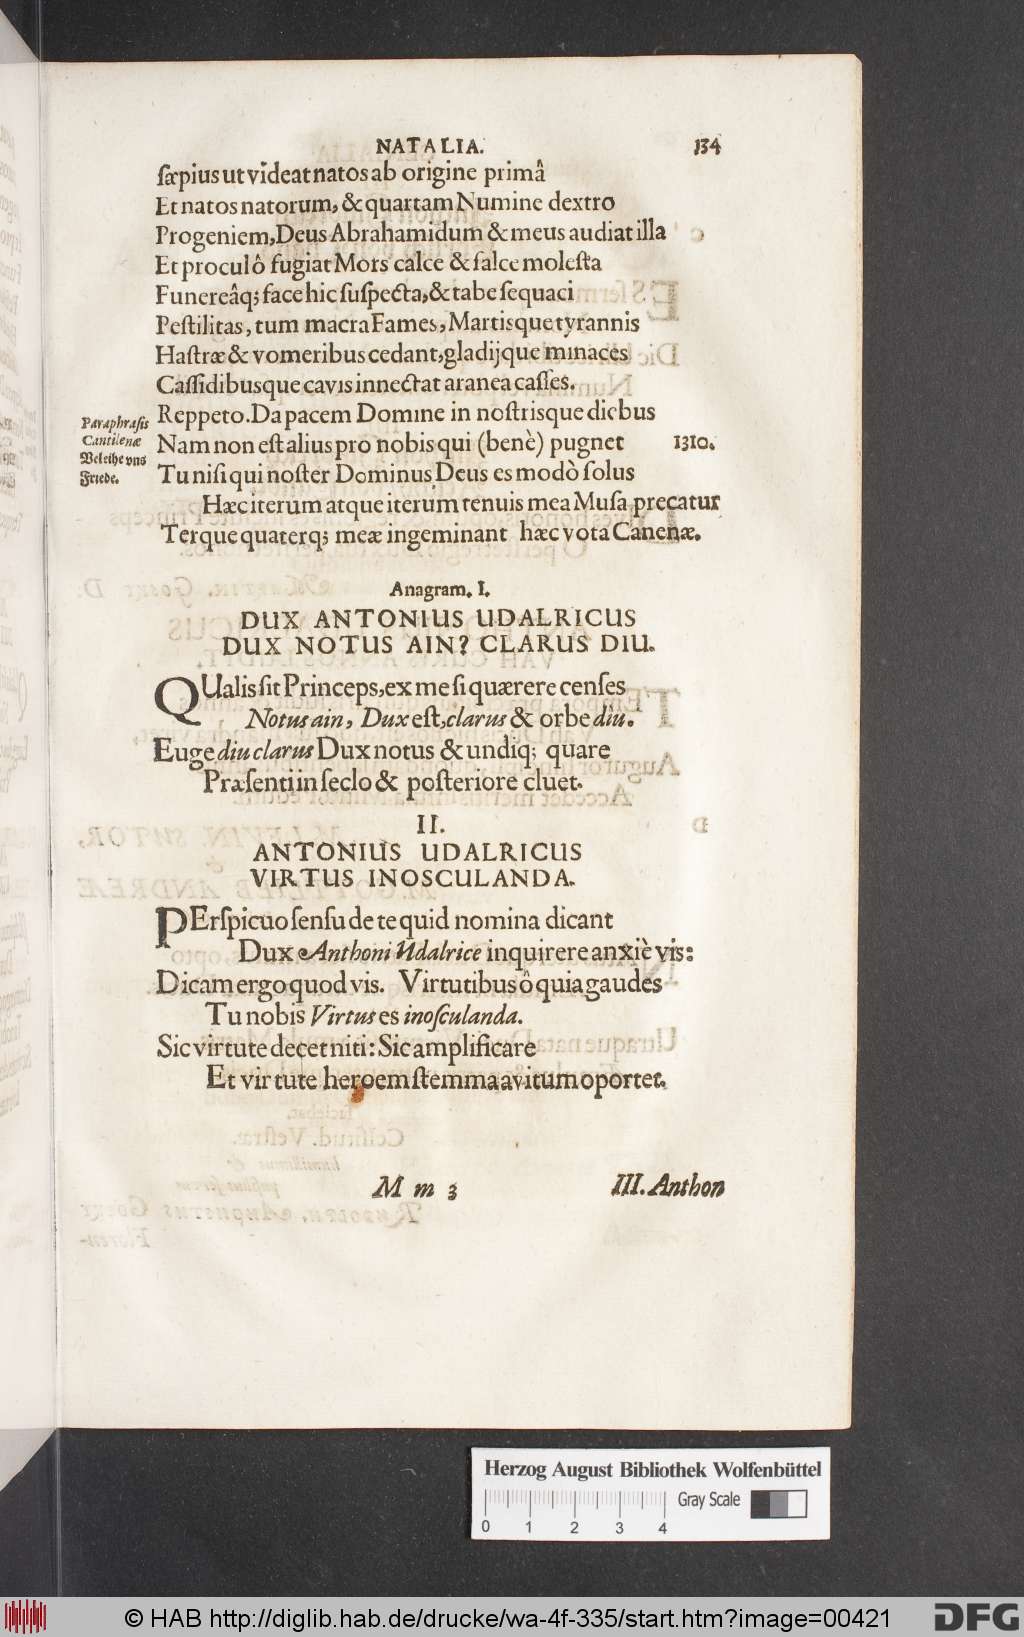 NATALIA. 134
sæpius ut videat natos ab origine primâ
Et natos natorum, & quartam Numine dextro
Progeniem, Deus Abrahamidum & meus audiat illa
Et procul ô fugiat Mors calce & falce molesta
Funereâq; face hic suspecta, & tabe sequaci
Pestilitas, tum macra Fames, Martisque tyrannis
Hastræ & vomeribus cedant, gladijque minaces
Cassidibusque cavis innectat aranea casses.
Reppeto. Da pacem Domine in nostrisque diebus
Paraphrasis
Cantilenæ
Verleihe uns
Friede.
Nam non est alius pro nobis qui (benè) pugnet 1310.
Tu nisi qui noster Dominus Deus es modò solus
Hæc iterum atque iterum tenuis mea Musa precatur
Terque quaterq; meæ ingeminant hæc vota Canenæ.
Anagram. I.
DUX ANTONIUS UDALRICUS
DUX NOTUS AIN? CLARUS DIU.
QUalis sit Princeps, ex me si quærere censes
Notus ain, Dux est, clarus & orbe diu.
Euge diu clarus Dux notus & undiq; quare
Præsenti in seclo & posteriore cluet.
II.
ANTONIUS UDALRICUS
VIRTUS INOSCULANDA.
PErspicuo sensu de te quid nomina dicant
Dux Anthoni Udalrice inquirere anxiè vis:
Dicam ergo quod vis. Virtutibus ô quia gaudes
Tu nobis Virtus es inosculanda.
Sic virtute decet niti: Sic amplificare
Et virtute heroem stemma avitum oportet.
M m 3 III. Anthon
Herzog August Bibliothek Wolfenbüttel
Gray Scale
0 1 2 3 4
© HAB http://diglib.hab.de/drucke/wa-4f-335/start.htm?image=00421 DFG